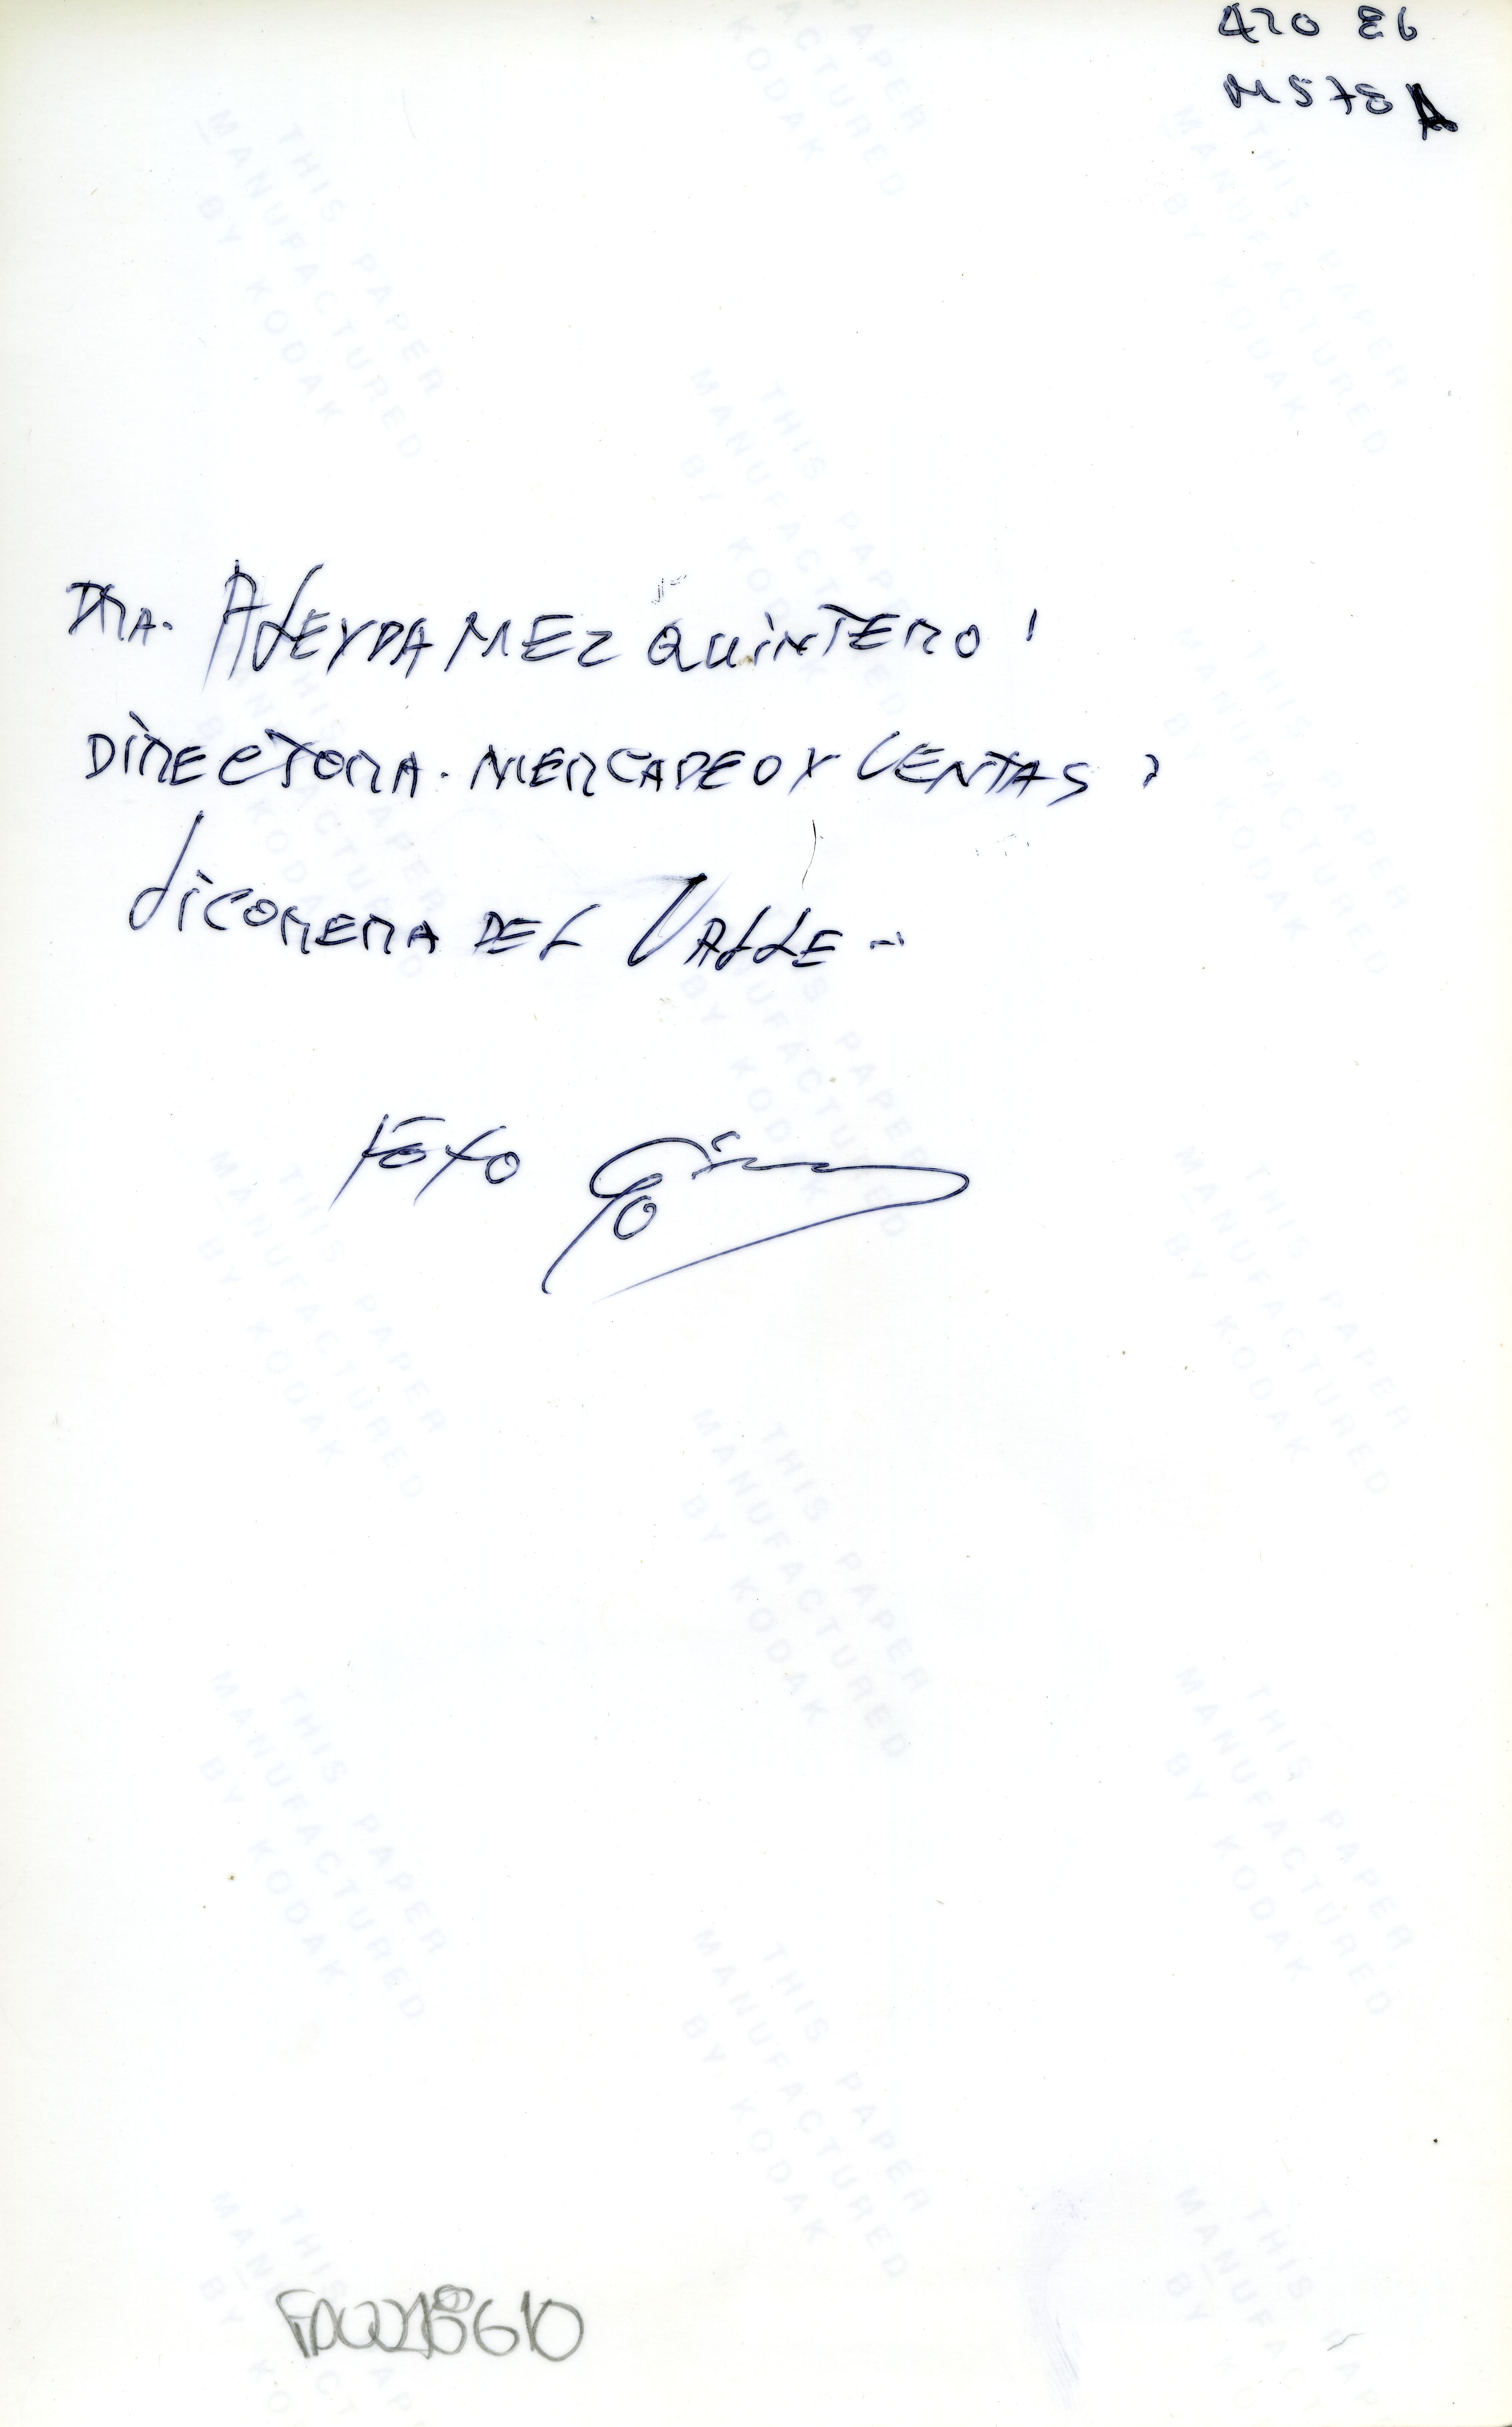 420 86
M578A
DRA. ALEYDA MEZ QUINTERO,
DIRECTORA. MERCADEO Y VENTAS,
LICORERA DEL VALLE -
FOTO
THIS PAPER
MANUFACTURED
BY KODAK